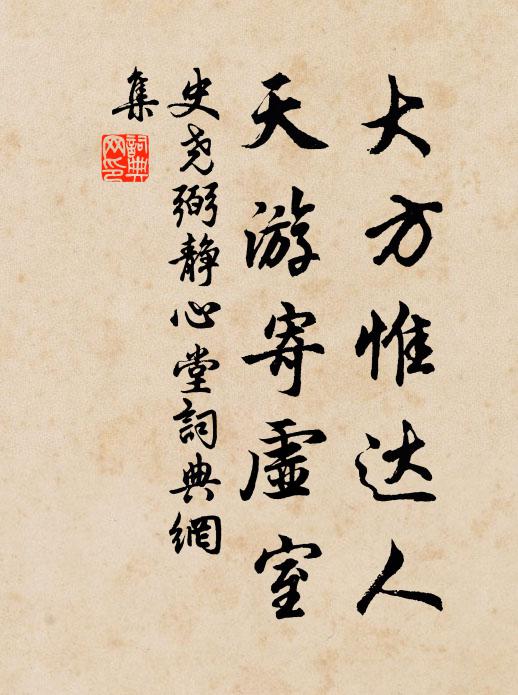 大方惟达人
天游寄虚室
史尧弼静心堂詞典網
集
詞典
网印